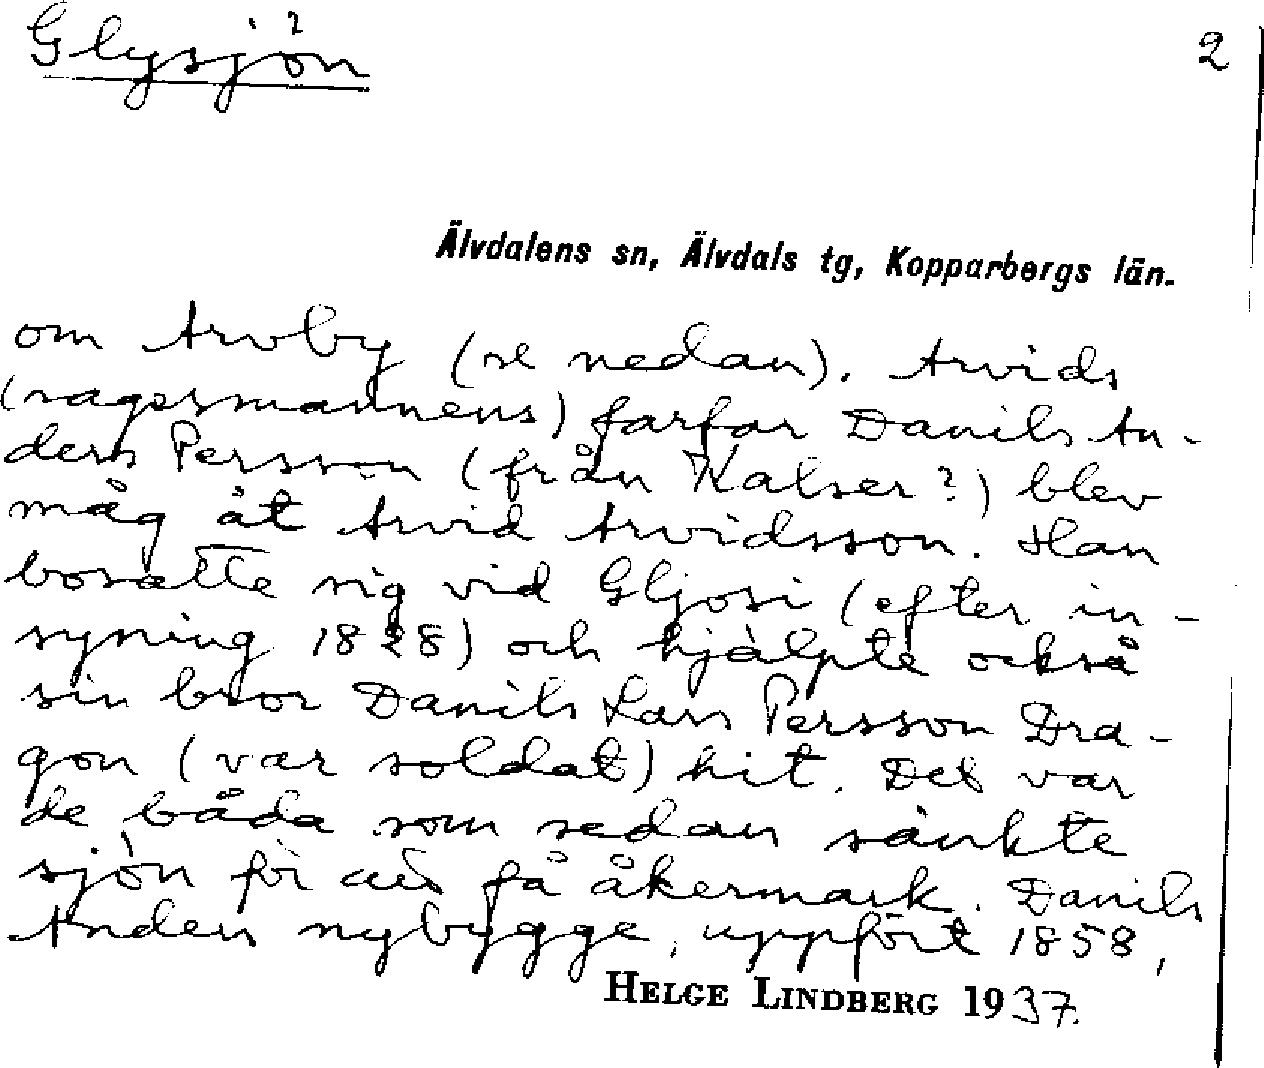 Glysjön
2
Älvdalens sn, Älvdals tg, Kopparbergs län.
om Arvby (se nedan). Arvids
(sagesmannens) farfar Danils An-
ders Persson (från Kalser?) blev
måg åt Arvid Arvidsson. Han
bosatte sig vid Gljosi (efter in-
syning 1828) och hjälpte också
sin bror Danils Lars Persson Dra-
gon (var soldat) hit. Det var
de båda som sedan sänkte
sjön för att få åkermark. Danils
Anders nybygge, uppfört 1858,
HELGE LINDBERG 1937.